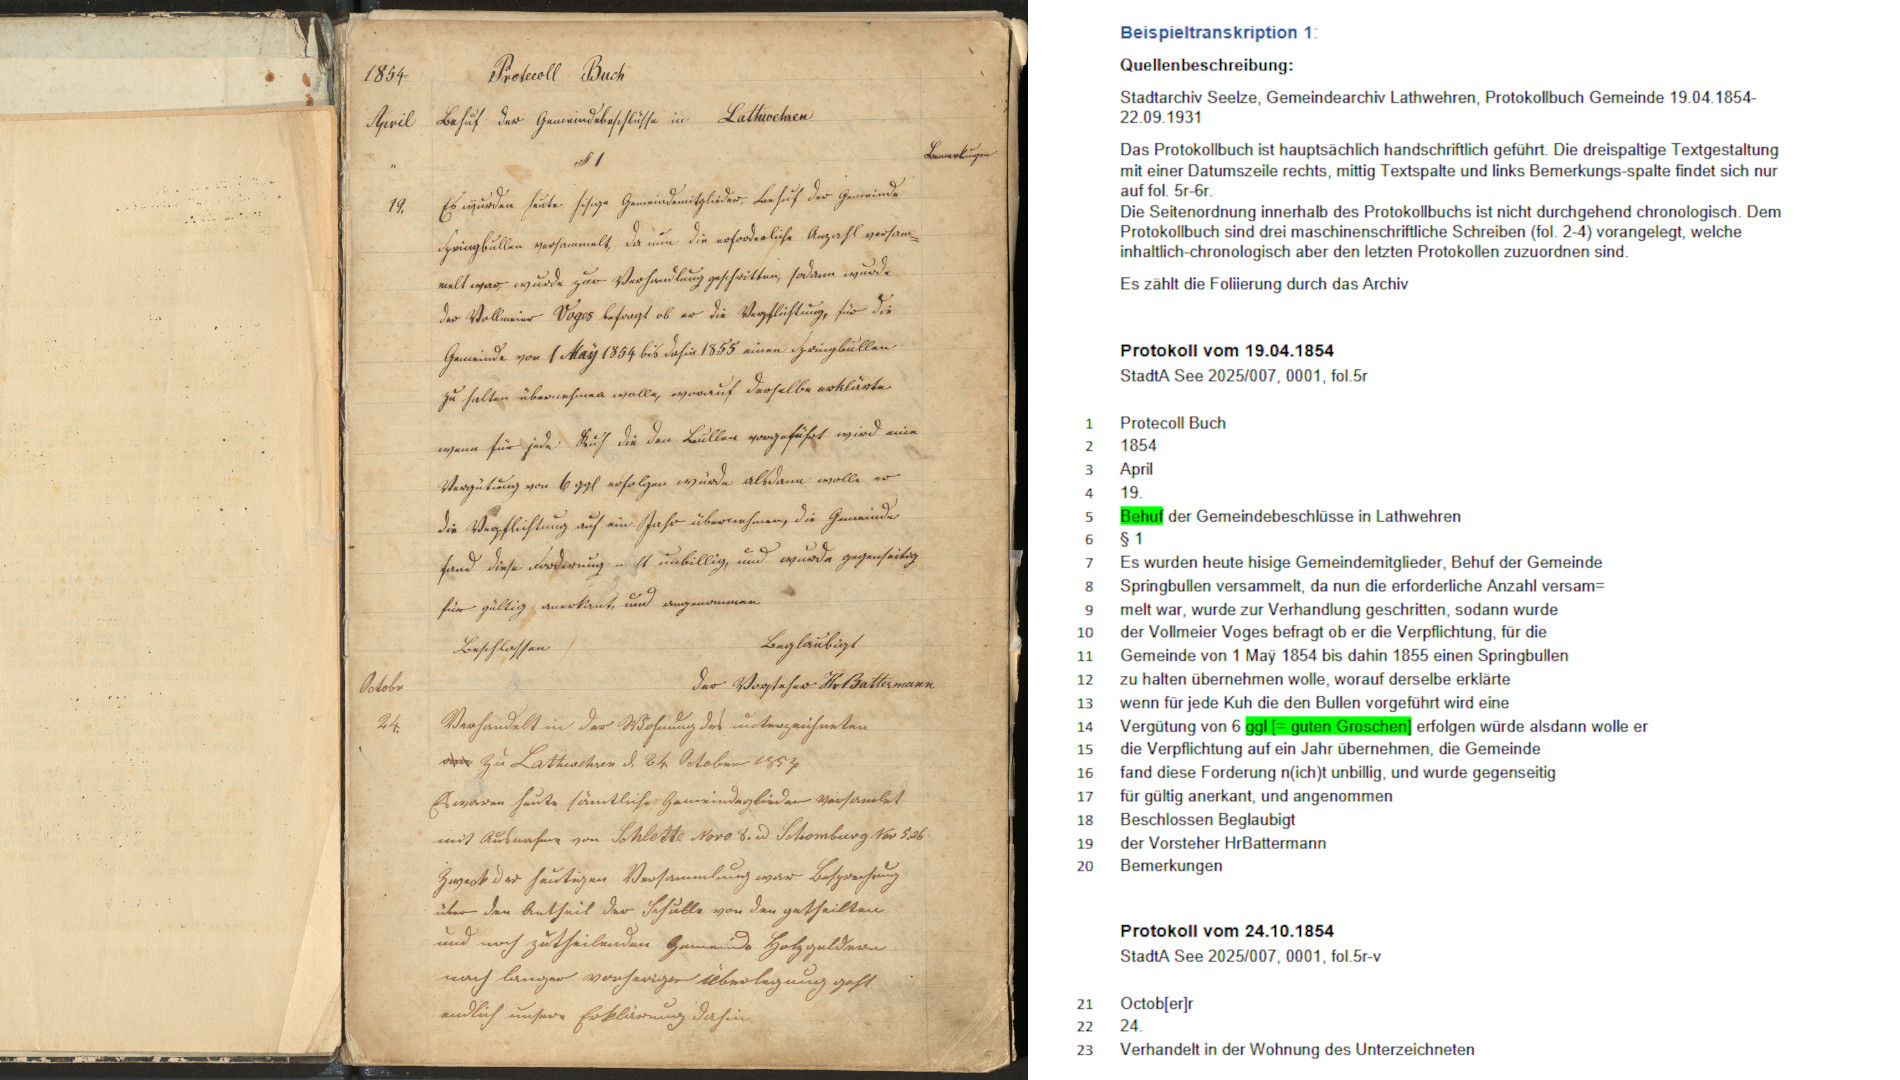 1854. Protocoll Buch
April Behuf der Gemeindebeschlüsse in Lathwehren
" § 1 Bemerkungen
19. Es wurden heute hisige Gemeindemitglieder, Behuf der Gemeinde
Springbullen versammelt, da nun die erforderliche Anzahl versam=
melt war, wurde zur Verhandlung geschritten, sodann wurde
der Vollmeier Voges befragt ob er die Verpflichtung, für die
Gemeinde von 1 Maÿ 1854 bis dahin 1855 einen Springbullen
zu halten übernehmen wolle, worauf derselbe erklärte
wenn für jede Kuh die den Bullen vorgeführt wird eine
Vergütung von 6 ggl erfolgen würde alsdann wolle er
die Verpflichtung auf ein Jahr übernehmen, die Gemeinde
fand diese Forderung nt unbillig, und wurde gegenseitig
für gültig anerkant, und angenommen
Beschlossen Beglaubigt
der Vorsteher HrBattermann
Octobr
24. Verhandelt in der Wohnung des unterzeichneten
zu Lathwehren d. 24. October 1854
Es waren heute sämtliche Gemeindeglieder versamlet
mit Ausnahme von Schlette Nro 8. u Schomburg Nro 5.26
Zweck der heutigen Versammlung war Besprechung
über den Antheil der Schulle von den getheilten
und noch zutheilenden Gemeinde Holzgeldern
nach langer vorheriger Überlegung geht
endlich unsere Erklärung dahin
Beispieltranskription 1:
Quellenbeschreibung:
Stadtarchiv Seelze, Gemeindearchiv Lathwehren, Protokollbuch Gemeinde 19.04.1854-
22.09.1931
Das Protokollbuch ist hauptsächlich handschriftlich geführt. Die dreispaltige Textgestaltung
mit einer Datumszeile rechts, mittig Textspalte und links Bemerkungs-spalte findet sich nur
auf fol. 5r-6r.
Die Seitenordnung innerhalb des Protokollbuchs ist nicht durchgehend chronologisch. Dem
Protokollbuch sind drei maschinenschriftliche Schreiben (fol. 2-4) vorangelegt, welche
inhaltlich-chronologisch aber den letzten Protokollen zuzuordnen sind.
Es zählt die Foliierung durch das Archiv
Protokoll vom 19.04.1854
StadtA See 2025/007, 0001, fol.5r
1 Protecoll Buch
2 1854
3 April
4 19.
5 Behuf der Gemeindebeschlüsse in Lathwehren
6 § 1
7 Es wurden heute hisige Gemeindemitglieder, Behuf der Gemeinde
8 Springbullen versammelt, da nun die erforderliche Anzahl versam=
9 melt war, wurde zur Verhandlung geschritten, sodann wurde
10 der Vollmeier Voges befragt ob er die Verpflichtung, für die
11 Gemeinde von 1 Maÿ 1854 bis dahin 1855 einen Springbullen
12 zu halten übernehmen wolle, worauf derselbe erklärte
13 wenn für jede Kuh die den Bullen vorgeführt wird eine
14 Vergütung von 6 ggl [= guten Groschen] erfolgen würde alsdann wolle er
15 die Verpflichtung auf ein Jahr übernehmen, die Gemeinde
16 fand diese Forderung n(ich)t unbillig, und wurde gegenseitig
17 für gültig anerkant, und angenommen
18 Beschlossen Beglaubigt
19 der Vorsteher HrBattermann
20 Bemerkungen
Protokoll vom 24.10.1854
StadtA See 2025/007, 0001, fol.5r-v
21 Octob[er]r
22 24.
23 Verhandelt in der Wohnung des Unterzeichneten